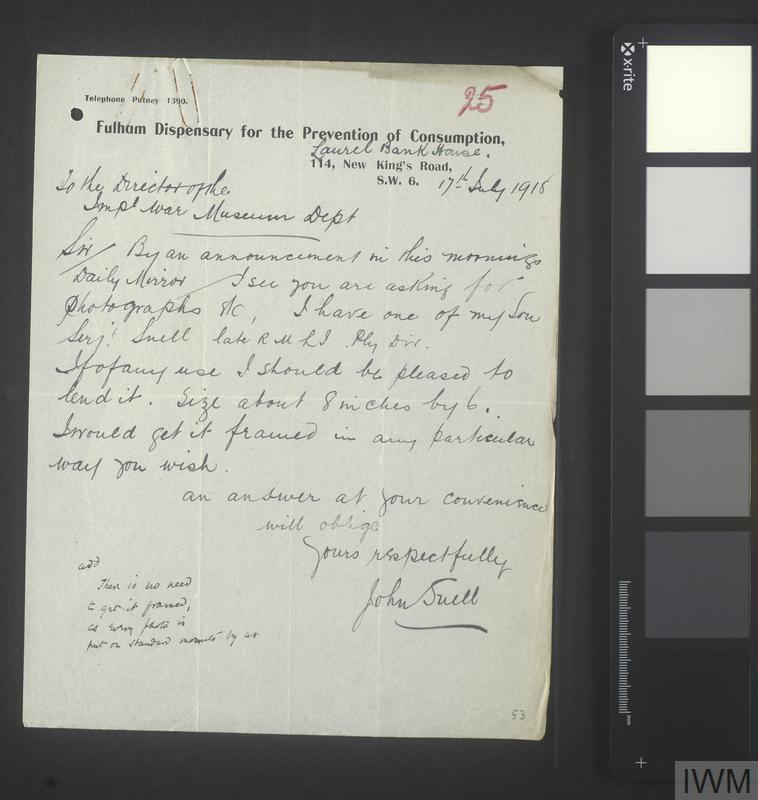 25
Telephone Putney 1390.
Fulham Dispensary for the Prevention of Consumption,
Laurel Bank House.
114, New King's Road,
S.W. 6. 17th July 1918
To the Director of the
Impl War Museum Dept
Sir By an announcement in this moornings
Daily Mirror I see you are asking for
photographs &c, I have one of my Son
Serjt Snell late R M L I Ply Div.
If of any use I should be pleased to
lend it. Size about 8 inches by 6.
I would get it framed in any particular
way you wish.
an answer at your convenience
will oblige
Yours respectfully
John Snell
add
There is no need
to get it framed,
as every photo is
put on standard mounts by us
53
x-rite
mm
IWM